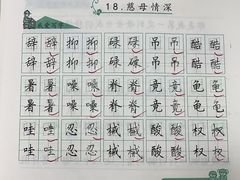 18.慈母情深
辞辞 抑抑 碌碌 吊吊 酷酷
辞辞 抑抑 碌碌 吊吊 酷酷
暑暑 噪噪 脊脊 竟竟 龟龟
暑暑 噪噪 脊脊 竟竟 龟龟
哇哇 忍忍 械械 酸酸 权权
哇哇 忍忍 械械 酸酸 权权